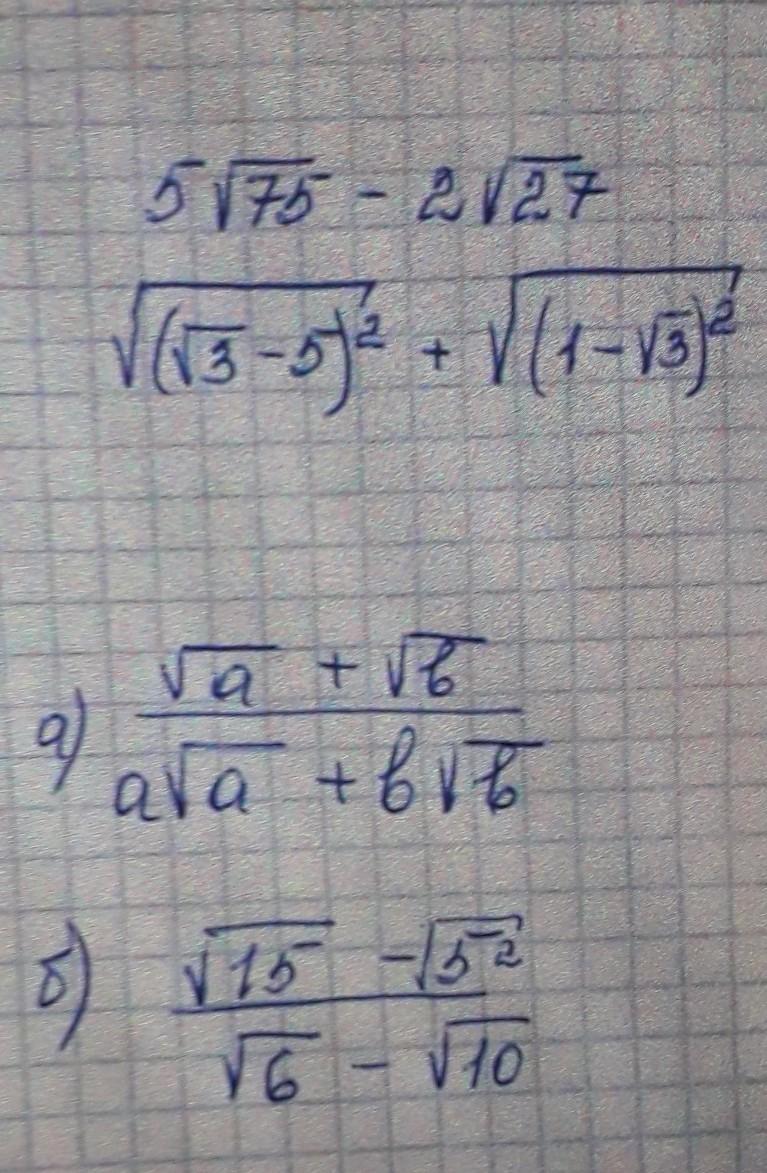 5√75 - 2√27
√(√3 - 5)² + √(1 - √3)²
а) (√a + √b) / (a√a + b√b)
б) (√15 - √5²) / (√6 - √10)